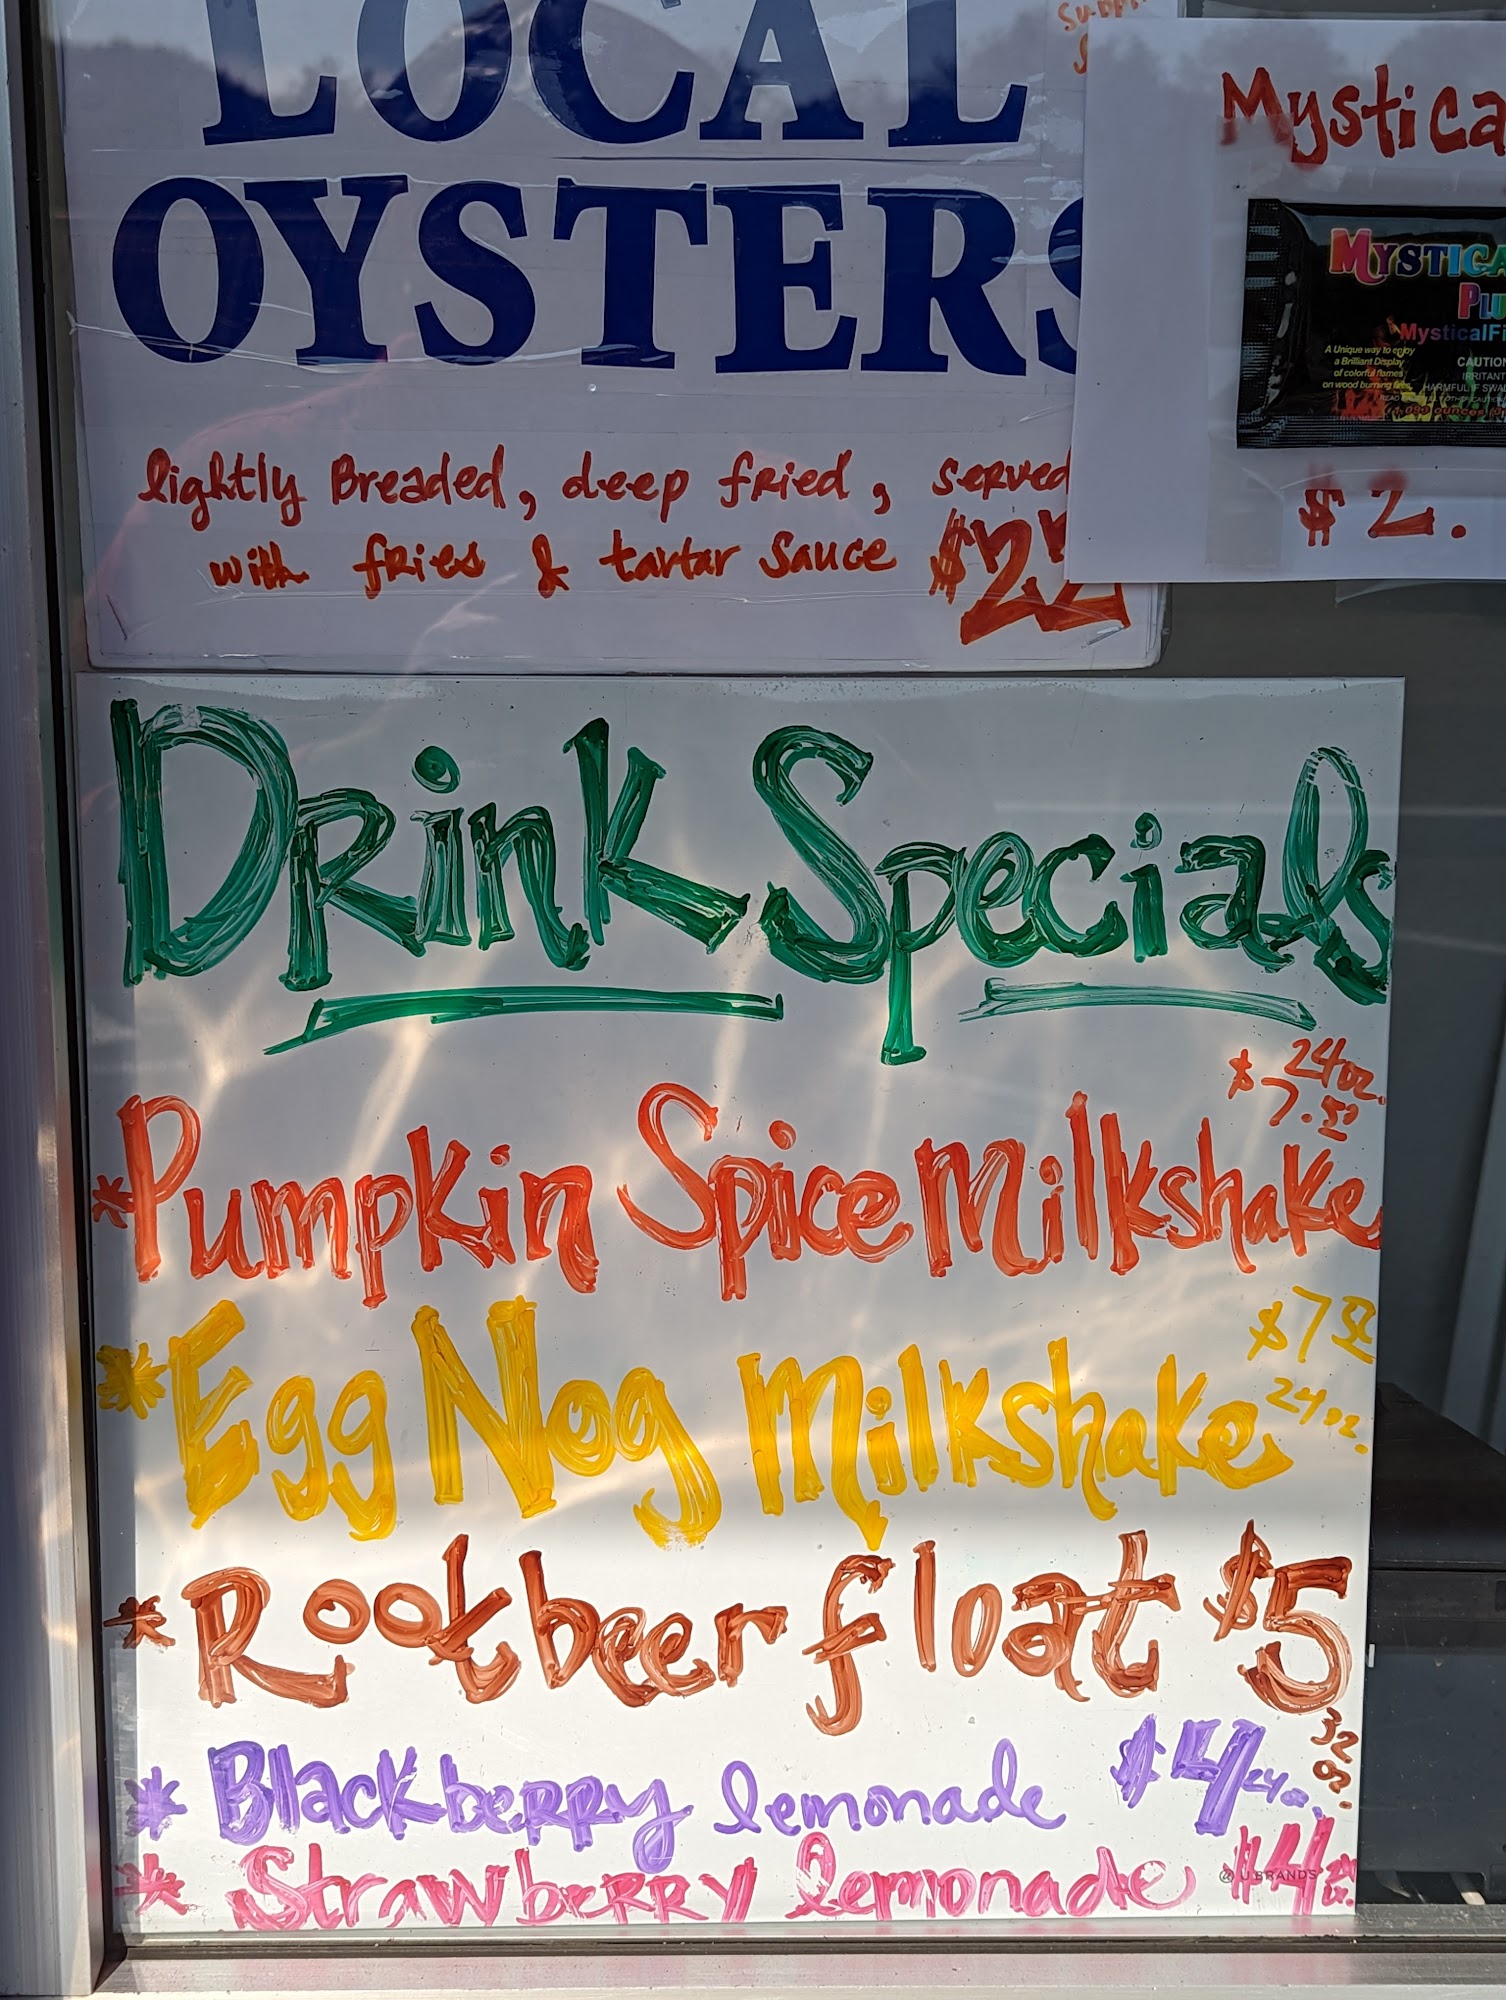 LOCAL
OYSTERS
lightly Breaded, deep fried, served
with fries & tartar Sauce $22
Mystica
MYSTICA
PLU
MysticalFi
A Unique way to enjoy
a Brilliant Display
of colorful flames
on wood burning fires
CAUTION
IRRITANT
HARMFUL IF SWAL
$2.
Drink Specials
24oz.
$7.50
*Pumpkin Spice Milkshake
$7.50
*Egg Nog Milkshake 24oz.
*Rootbeer float $5
32
oz.
*Blackberry lemonade $4/24oz.
*Strawberry lemonade $4
U BRANDS